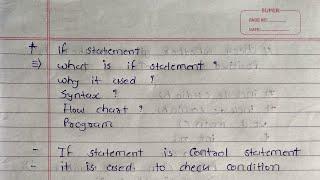 SUPER
PAGE NO.:
DATE:
* If statement
⇒ what is if statement ?
why it used ?
Syntax ?
Flow chart ?
Program
- If statement is Control statement
- it is used to check condition